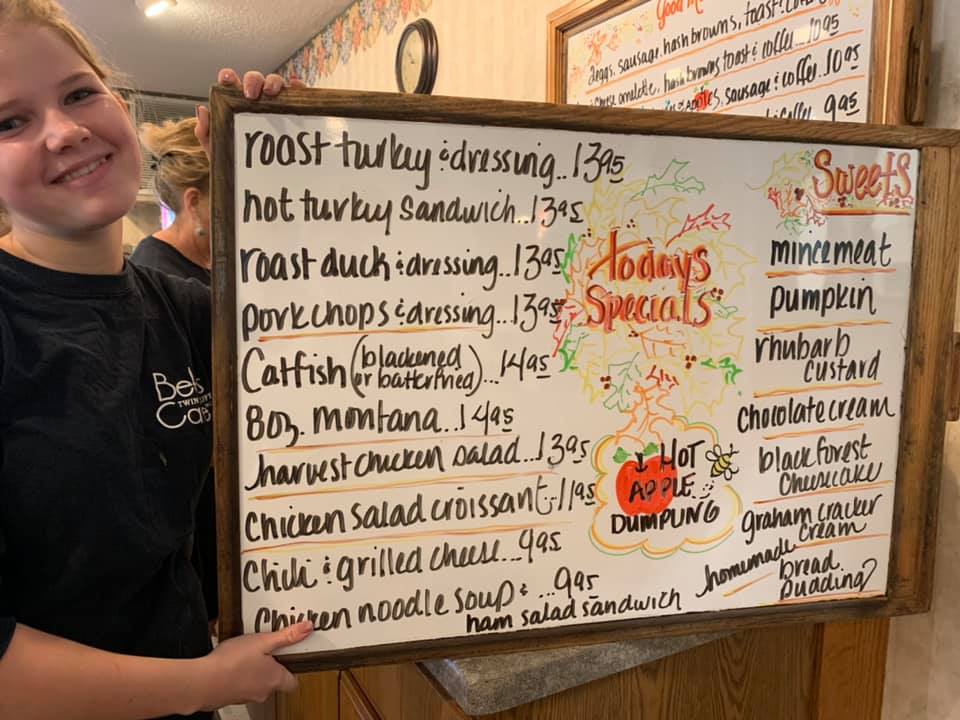 Good M
2eggs, sausage, hash browns, toast & coffee
cheese omelette, hash browns toast & coffee...10 95
apples, sausage & coffee..10 95
coffee... 9 95
roast turkey & dressing..13 95
hot turkey sandwich..13 95
roast duck & dressing..13 95
pork chops & dressing..13 95
Catfish (blackened or batterfried)...14 95
8oz. montana..14 95
harvest chicken salad...13 95
chicken salad croissant..11 95
Chili & grilled cheese...9 95
Chicken noodle soup & ...9 95
ham salad sandwich
Todays
Specials
HOT
APPLE
DUMPLING
Sweets
mincemeat
pumpkin
rhubarb
custard
chocolate cream
black forest
cheesecake
graham cracker
cream
homemade
bread
pudding
TWIN